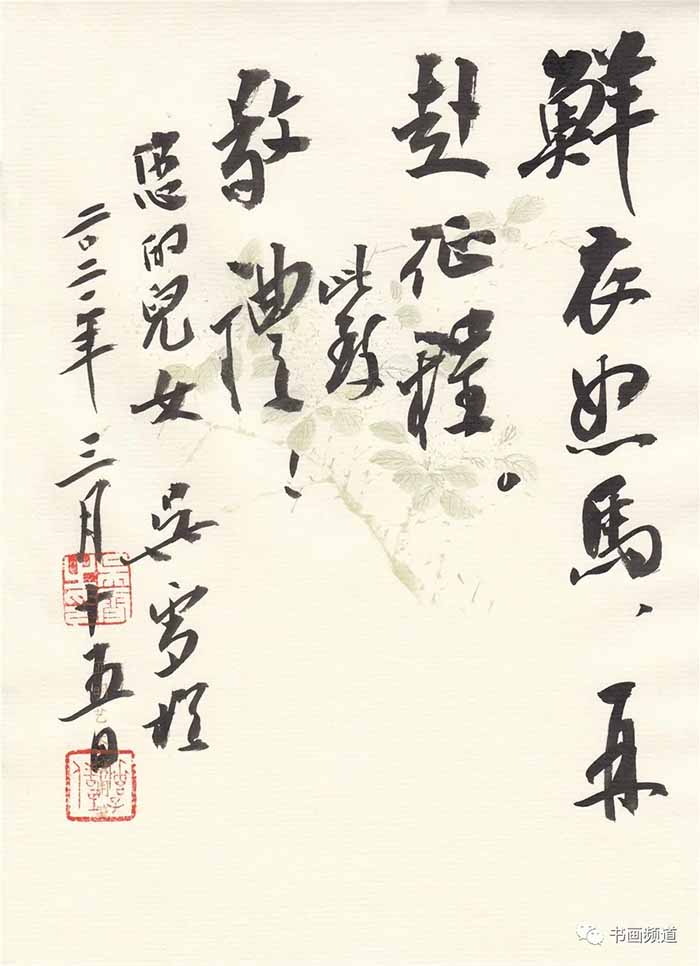 鮮衣怒馬、再
赴征程。
此致
敬禮！
您的兒女 吳雪
二〇二一年三月十五日
书画频道